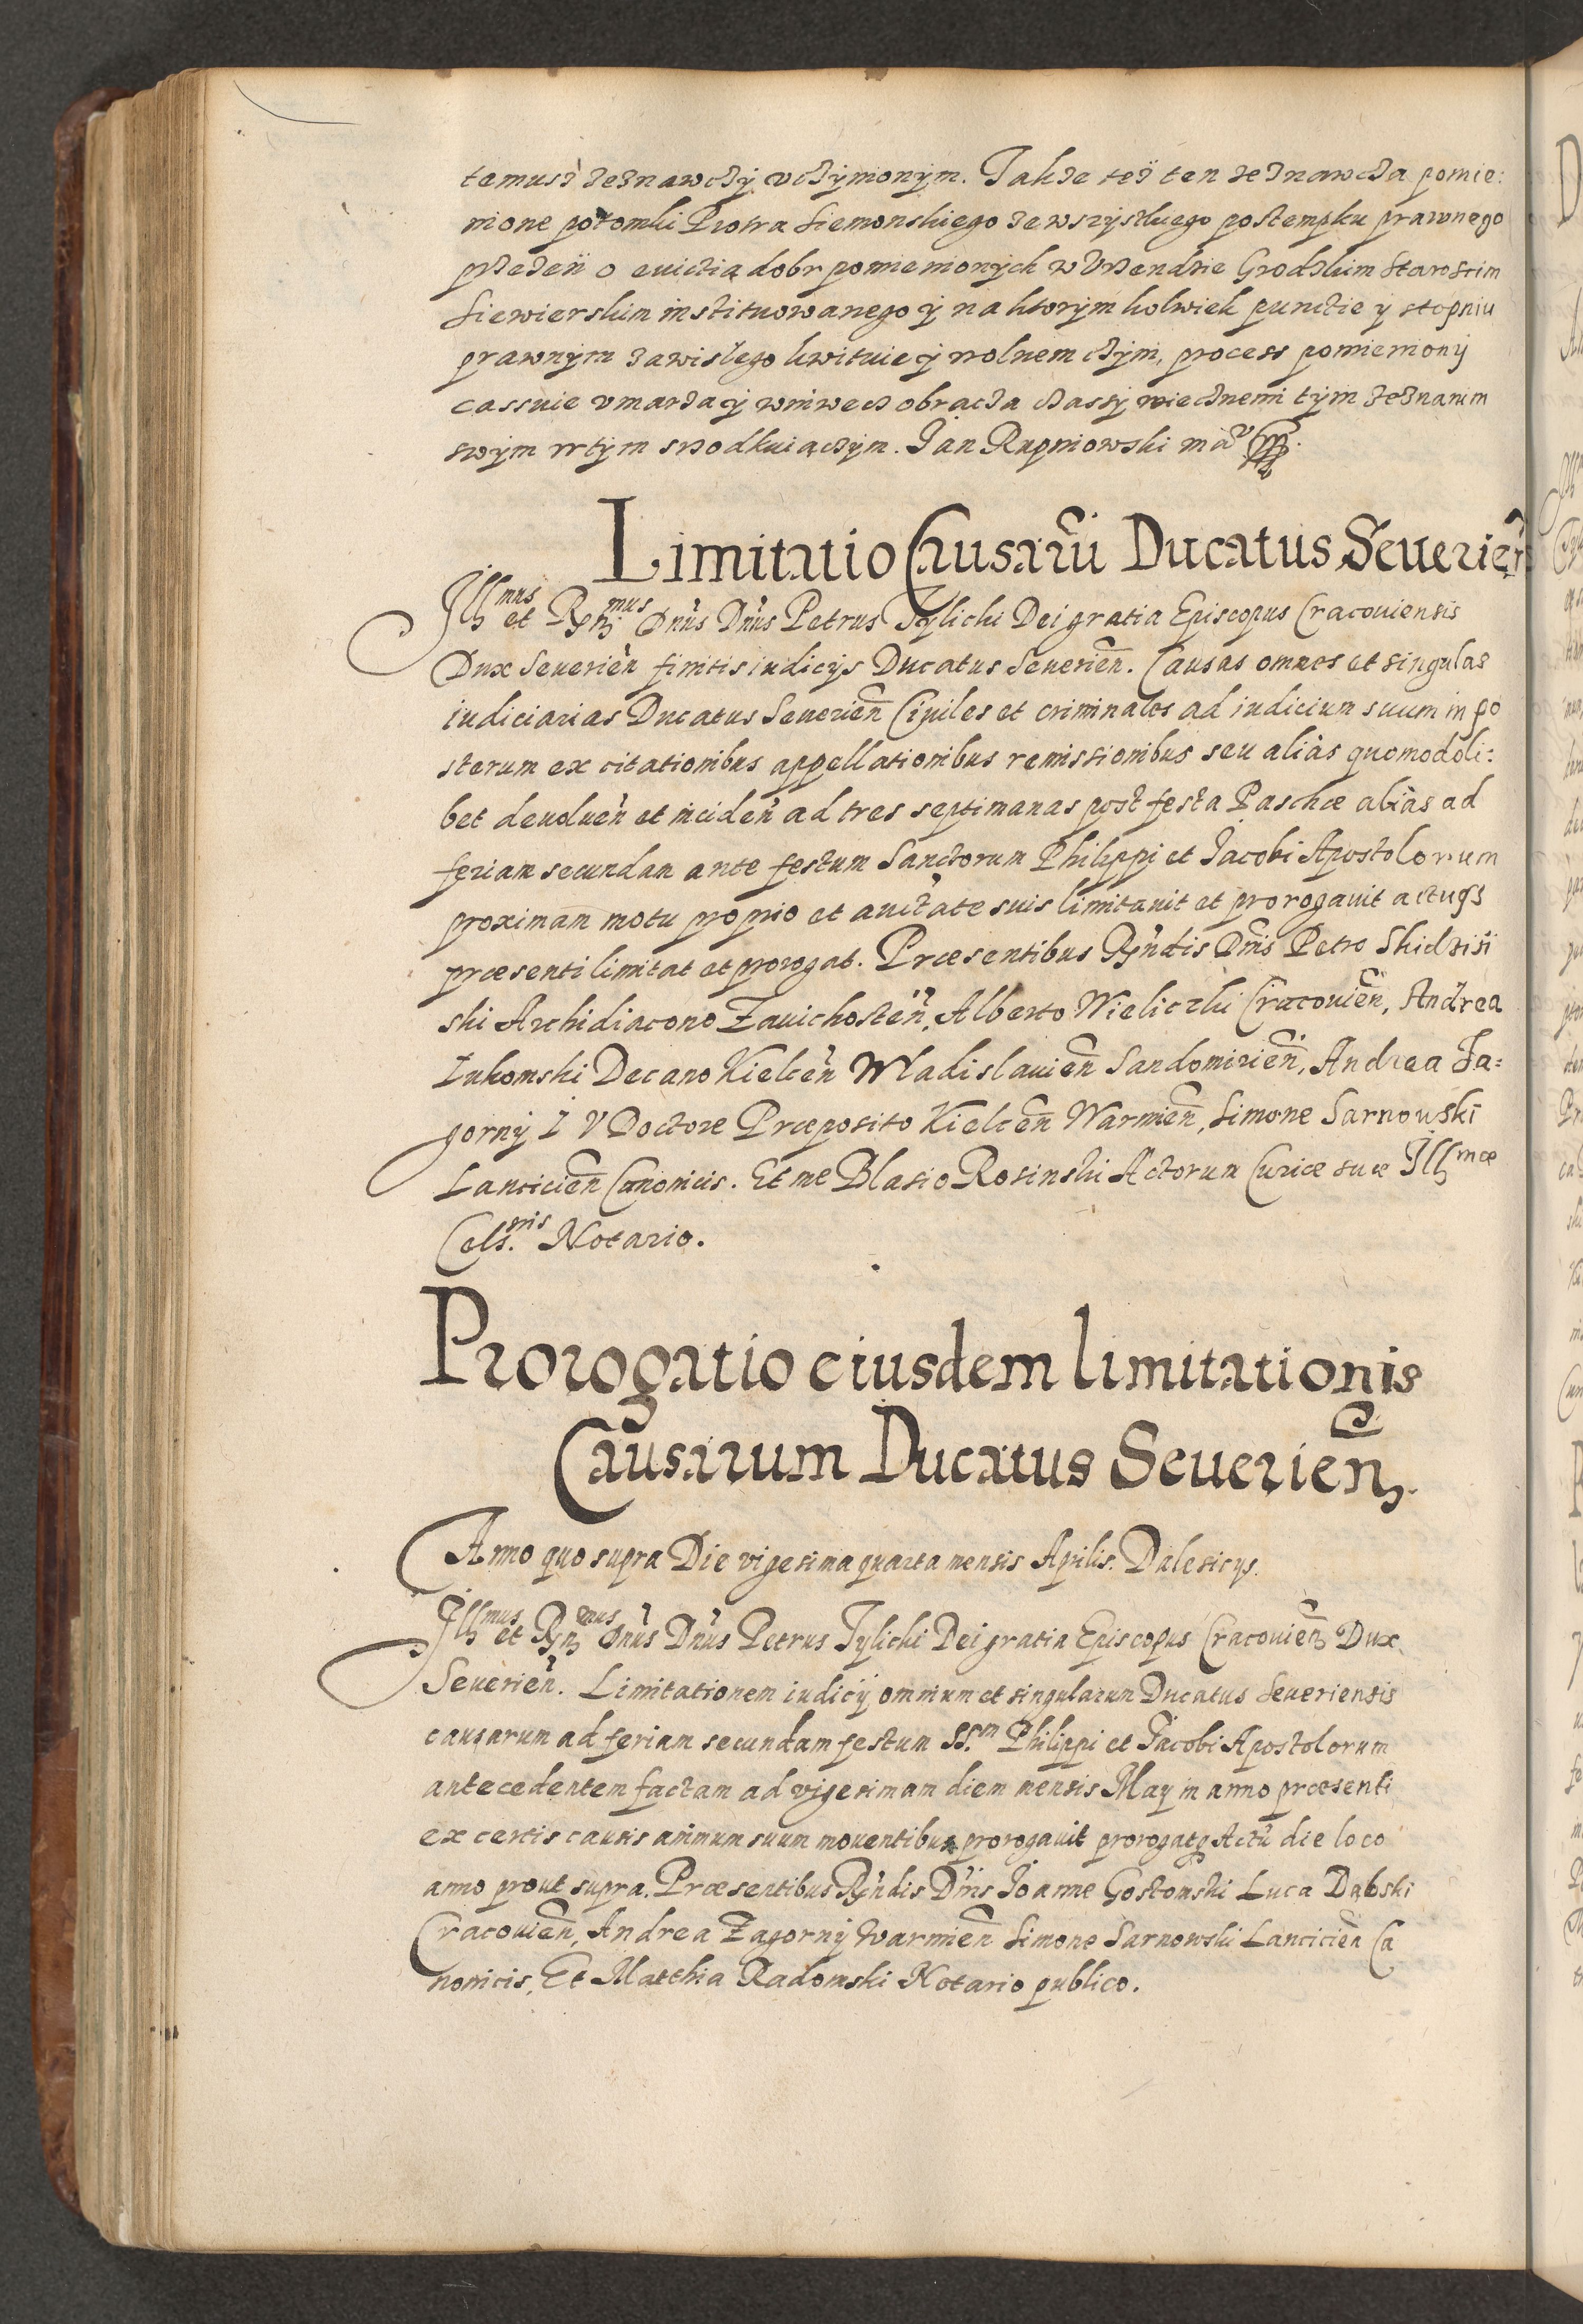 temusz zeznawczÿ vczÿnionÿm. Takze tez ten zeznawcza pomie:
nione potomki Piotra Siemonskiego ze wszÿstkiego postempku prawnego
przezeń o euictią dobr pomienionÿch w Vrzendzie Grodzkim Starostim
Siewierskim instituowanego ÿ na ktorÿm kolwiek punctie y stopniu
prawnÿm zawisłego kwituie ÿ wolnem czÿni, process pomieniony
cassuie vmarza ÿ wniwecz obracza czassÿ wiecznemi tÿm zeznanim
swÿm w tÿm srzodkuiączÿm. Jan Rupniowski mą
Limitatio Causarū Ducatus Seuerien̄
Illmus et Rndmus Dn̄us Dn̄us Petrus Tylicki Dei gratia Episcopus Cracouiensis
Dux Seuerien̄ finitis iudicÿs Ducatus Seuerien̄. Causas omnes et singulas
iudiciarias Ducatus Seuerien̄ Ciuiles et criminales ad iudicium suum in po
sterum ex citationibus appellationibus remissionibus seu aliàs quomodoli:
bet deuoluen̄ et inciden̄ ad tres septimanas post festa Paschæ aliàs ad
feriam secundam ante festum Sanctorum Philippi et Jacobi Apostolorum
proximam motu proprio et auctate suis limitauit et prorogauit actuqs
præsenti limitat et prorogat. Præsentibus Rn̄dis Dn̄is Petro Skidzi
ski Archidiacono Zauichosten̄, Alberto Wieliczki Cracouien̄, Andrea
Łukomski Decano Kielcen̄ Wladislauien̄ Sandomirien̄, Andrea Za=
gorny I V Doctore Præposito Kielcen̄ Warmien̄, Simone Sarnowski
Lancicien̄ Canonicis. Et me Blasio Rosinski Actorum Curiæ suæ Illmæ
Cels.nis Notario.
Prorogatio eiusdem limitationis
Causarum Ducatus Seuerien̄.
Anno quo supra Die vigesima quarta mensis Aprilis. Dalesicÿs.
Illmus et Rndmus Dn̄us Dn̄us Petrus Tylicki Dei gratia Episcopus Cracouien̄ Dux
Seuerien̄. Limitationem iudicÿ omnium et singularum Ducatus Seueriensis
causarum ad feriam secundam festum SS.m Philippi et Jacobi Apostolorum
antecedentem factam ad vigesimam diem mensis Maÿ in anno præsenti
ex certis causis animum suum mouentibus prorogauit prorogatq Actū die loco
anno prout supra. Præsentibus Rn̄dis Dn̄is Joanne Gostomski Luca Dąbski
Cracouien̄, Andrea Zagornÿ Warmien̄ Simone Sarnowski Lancicien̄ Ca
nonicis, Et Matthia Radomski Notario publico.